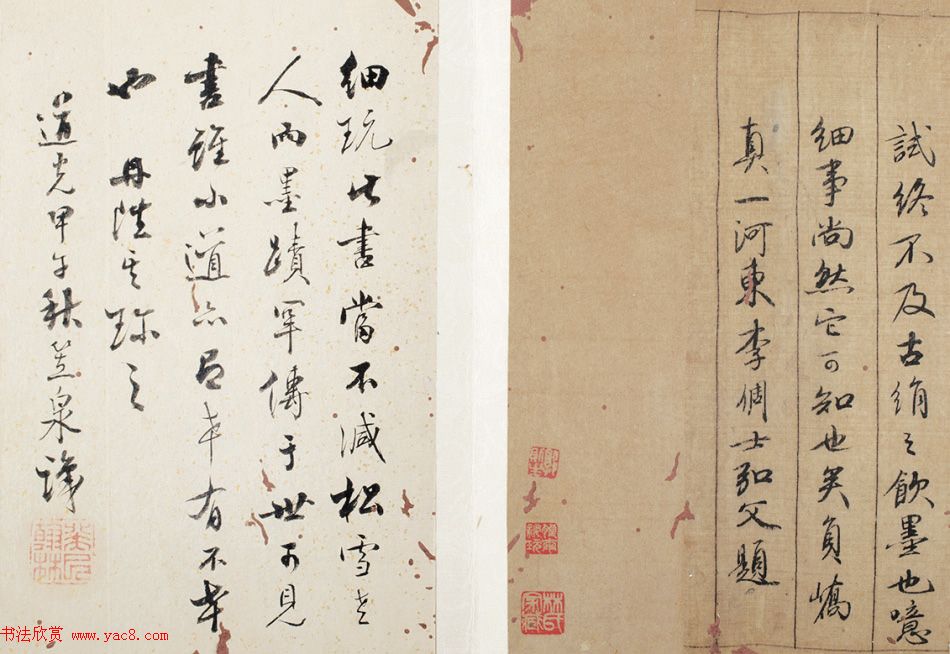 試終不及古絹之飲墨也噫
細事尚然它可知也矣員嶠
真一河東李倜士弘父題
細玩此書當不減松雪老
人而墨蹟罕傳于世可見
書雖小道亦有幸有不幸
也丹陛其珍之
道光甲午秋笠泉識
书法欣赏 www.yac8.com